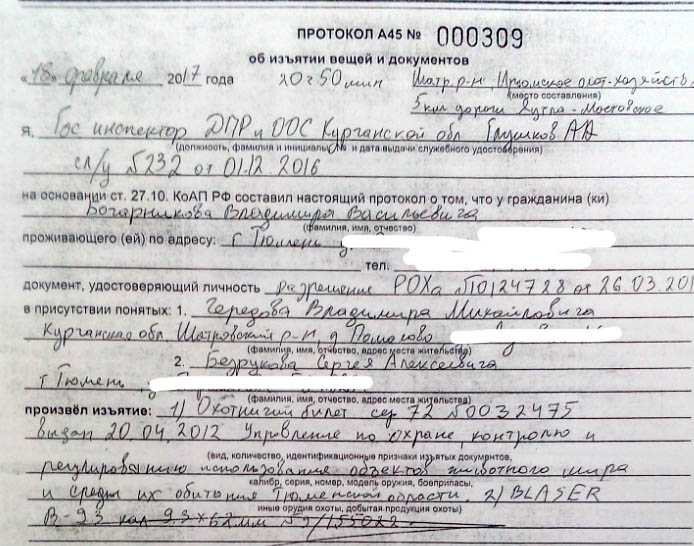 ПРОТОКОЛ А45 № 000309
об изъятии вещей и документов
«18» февраля 2017 года 20 г 50 мин Шатр. р-н, Ирюмское охот-хозяйств
(место составления)
5 км дороги Яутла - Мостовское
Я, Гос инспектор ДПР и ООС Курганской обл Глушков АА
(должность, фамилия и инициалы, № и дата выдачи служебного удостоверения)
сл/у №232 от 01.12 2016
на основании ст. 27.10. КоАП РФ составил настоящий протокол о том, что у гражданина (ки)
Бочарникова Владимира Васильевича
(фамилия, имя, отчество)
проживающего (ей) по адресу: г Тюмень
тел.
документ, удостоверяющий личность разрешение РОХа №10124728 от 26.03.201
в присутствии понятых: 1. Чередова Владимира Михайловича
Курганская обл. Шатровский р-н, д
(фамилия, имя, отчество, адрес места жительства)
2. Безрукова Сергея Алексеевича
г Тюмень
(фамилия, имя, отчество, адрес места жительства)
произвёл изъятие: 1) Охотничий билет сер 72 №0032475
выдан 20.04.2012 Управление по охране, контролю и
(вид, количество, идентификационные признаки изъятых документов,
регулированию использования объектов животного мира
калибр, серия, номер, модель оружия, боеприпасы,
и среды их обитания Тюменской области. 2) BLASER
иные орудия охоты, добытая продукция охоты)
В-93 кал 9.3×62мм